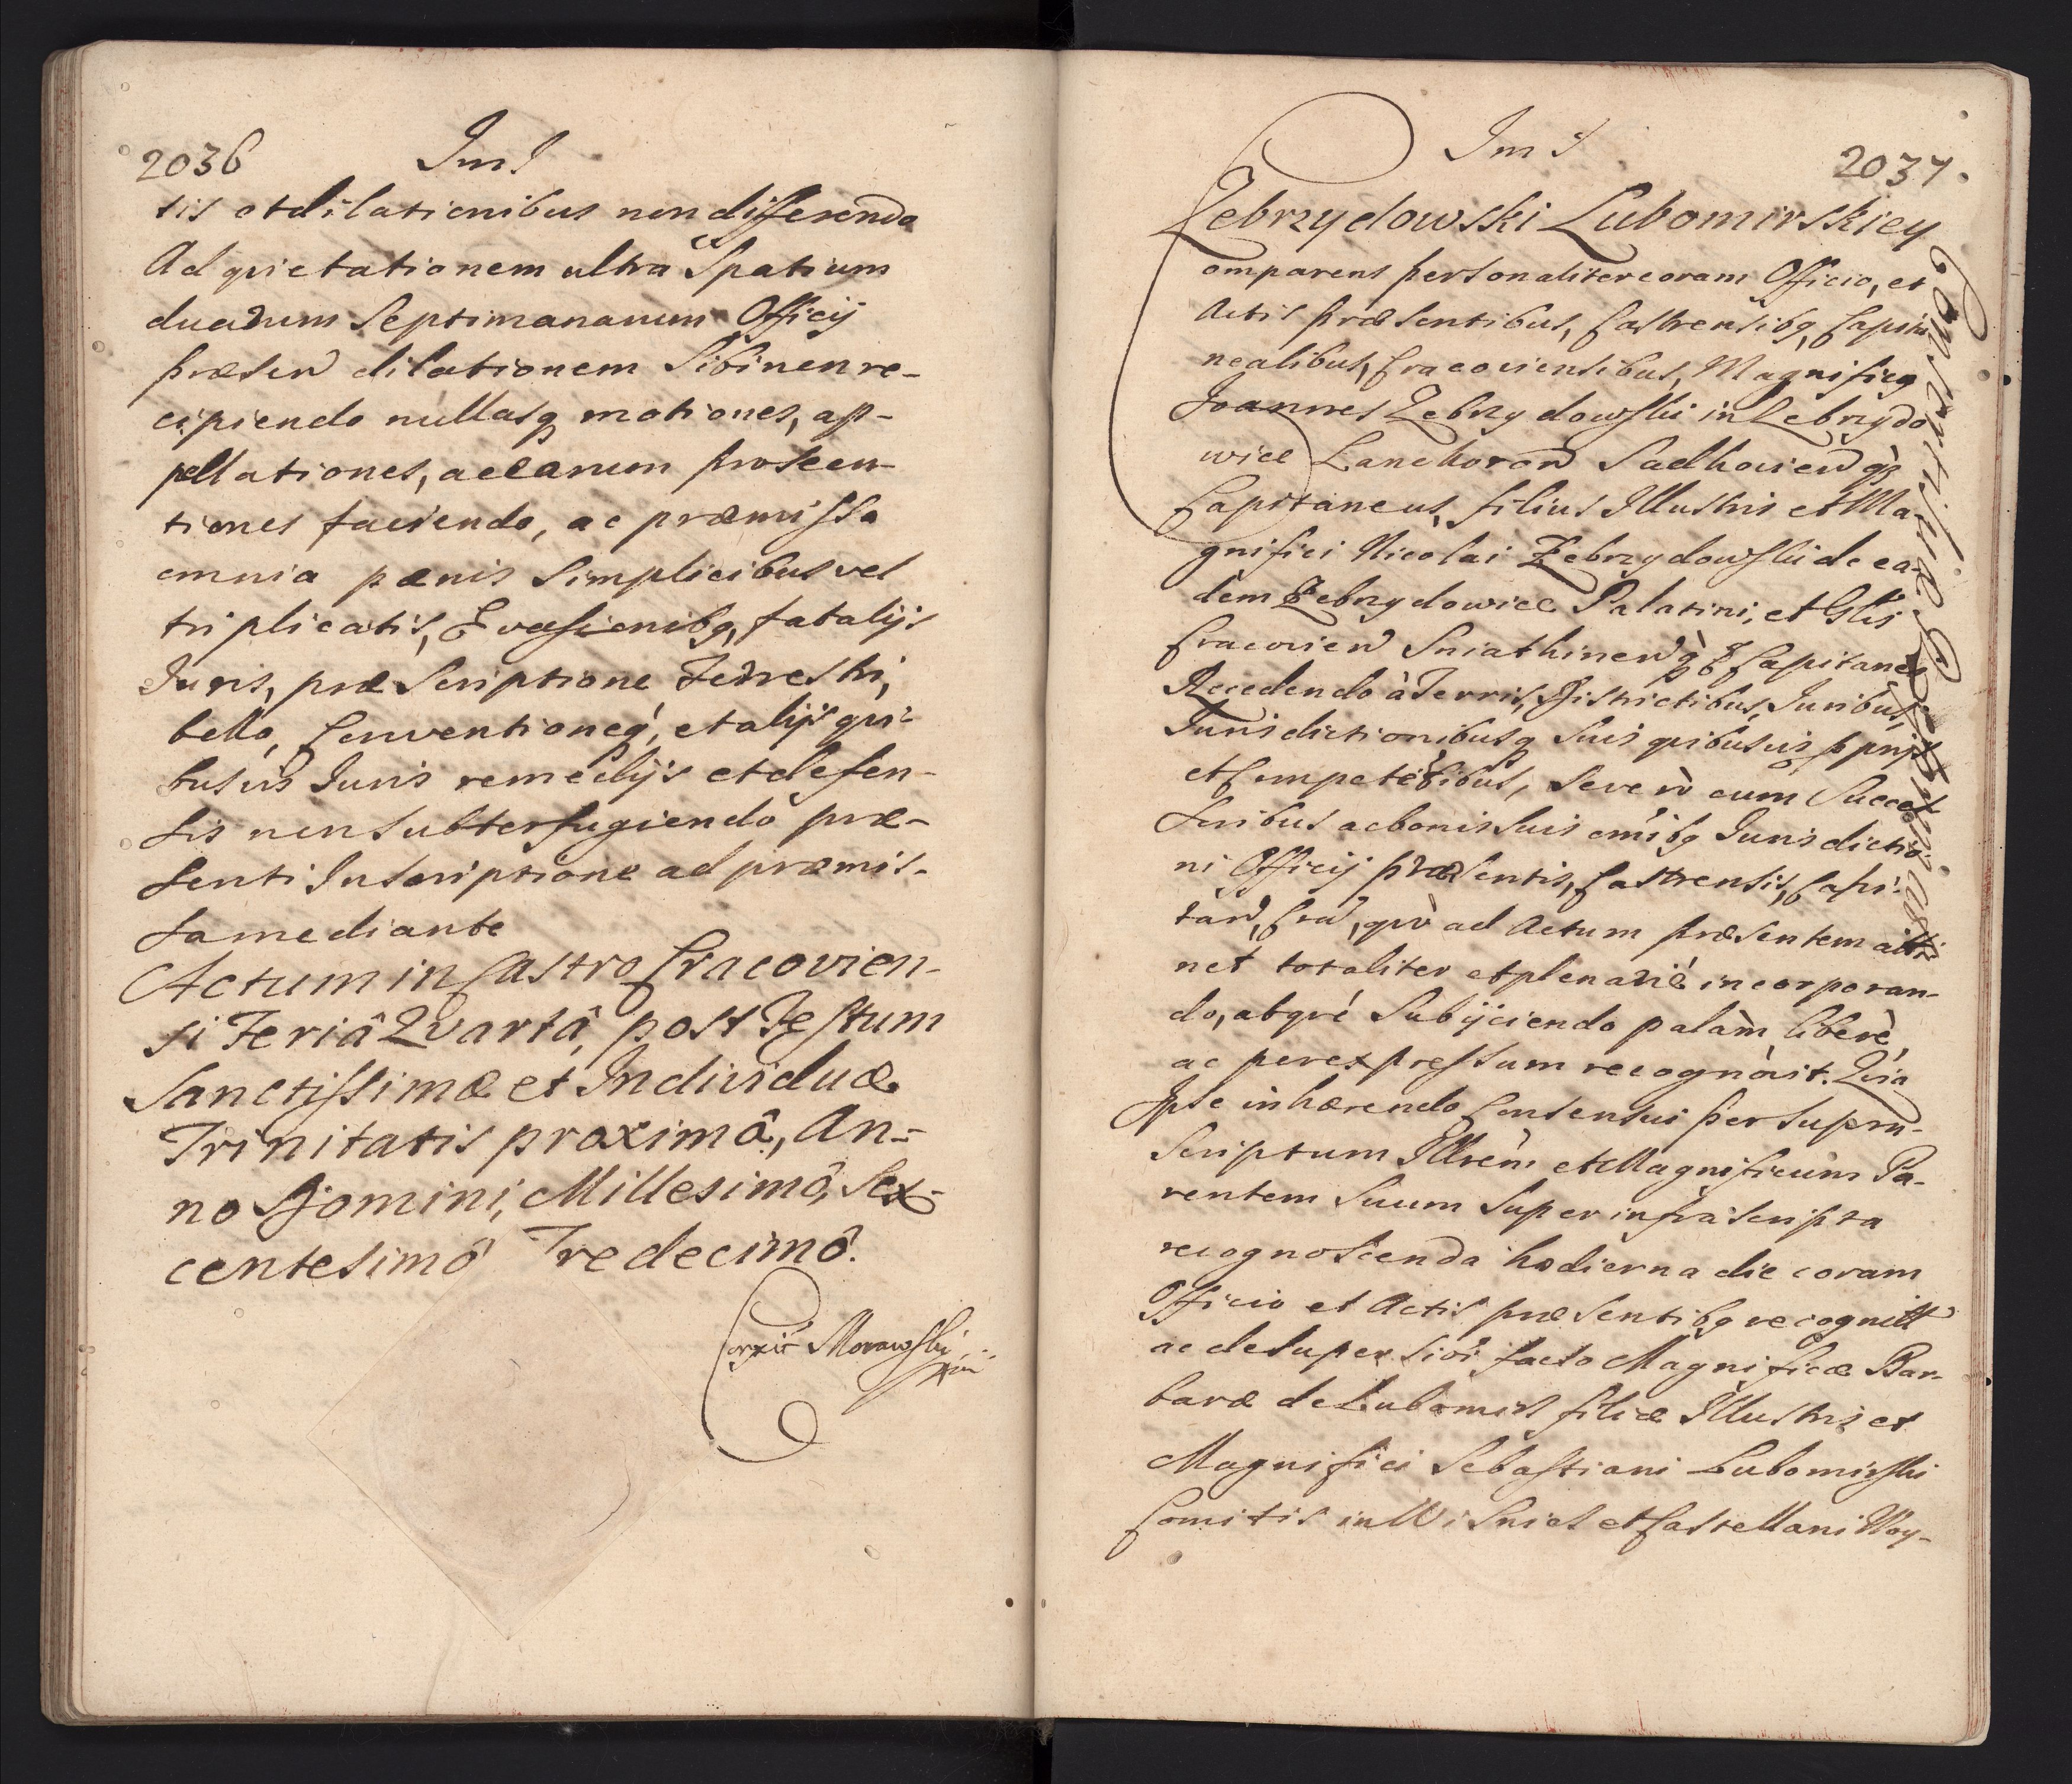 2036
Im I
tis et dilationibus non differendo
Ad quietationem ultra Spatium
duarum Septimanarum Officÿ
præsen dilationem Sibi non re-
cipiendo nullasq motiones, ap-
pellationes, ac earum prosecu-
tiones faciendo, ac præmissa
omnia pænis Simplicibus vel
triplicatis, Evasionibq, fatalÿs
Juris, præscriptione Terrestri,
bello, Conventioneq, et alÿs qui-
busvis Juris remedÿs et defen-
sis non subterfugiendo præ-
senti Inscriptione ad præmis-
sa mediante
Actum in Castro Cracovien-
si Feriâ Qvartâ, post Festum
Sanctissimæ et Individuæ
Trinitatis proximâ, An-
no Domini, Millesimô, Sex-
centesimô Tredecimô.
Morawski
Im I
2037.
Zebrzydowski Lubomirskiey
omparens personaliter coram Officio, et
Actis præsentibus, Castrensibq, Capita
nealibus, Cracoviensibus, Magnificq
Joannes Zebrzydowski in Zebrzydo
wice Lanckoron
Capitaneus, filius Illustris et Ma-
gnifici Nicolai Zebrzydowski de ea-
dem Zebrzydowice Palatini, et Glis
Cracovien Sniathinen Capitanei
Recedendo à Terris, Districtibus, Juribus,
Jurisdictionibusq Suis quibusvis pprÿs
et Competẽtibus, Seve cum Succes
soribus ac bonis suis om̃ibq Jurisdictio
ni Officÿ præsentis, Castrensis, Capi-
tan, Cra, qvò ad Actum præsentem atti
net totaliter et plenariè incorporan-
do, atqvé Subÿciendo palàm, liberè,
ac per expressum recognovit. Qvia
Ipse inhærendo Consensui per supra-
scriptum Illrem et Magnificum Pa-
rentem Suum Super infrà scripta
recognoscenda hodierna die coram
Officio et Actis præsentibq recognitt
ac desuper sibi facto Magnificæ Bar-
baræ de Lubomir filiæ Illustris et
Magnifici Sebastiani Lubomirski
Comitis in Wisnicz et Castellani Woy-